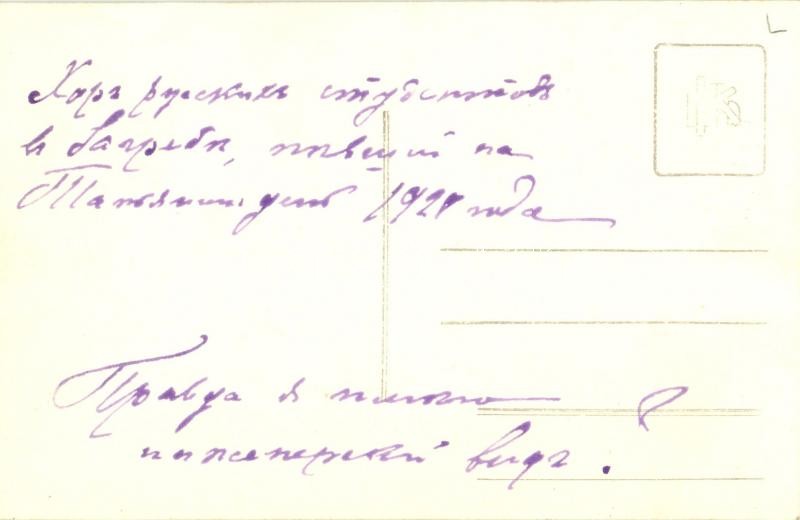 Хоръ русскихъ студентовъ
въ Загребѣ, пѣвшій на
Татьянинъ день 1928 года
Правда я имѣю
инженерскій видъ?